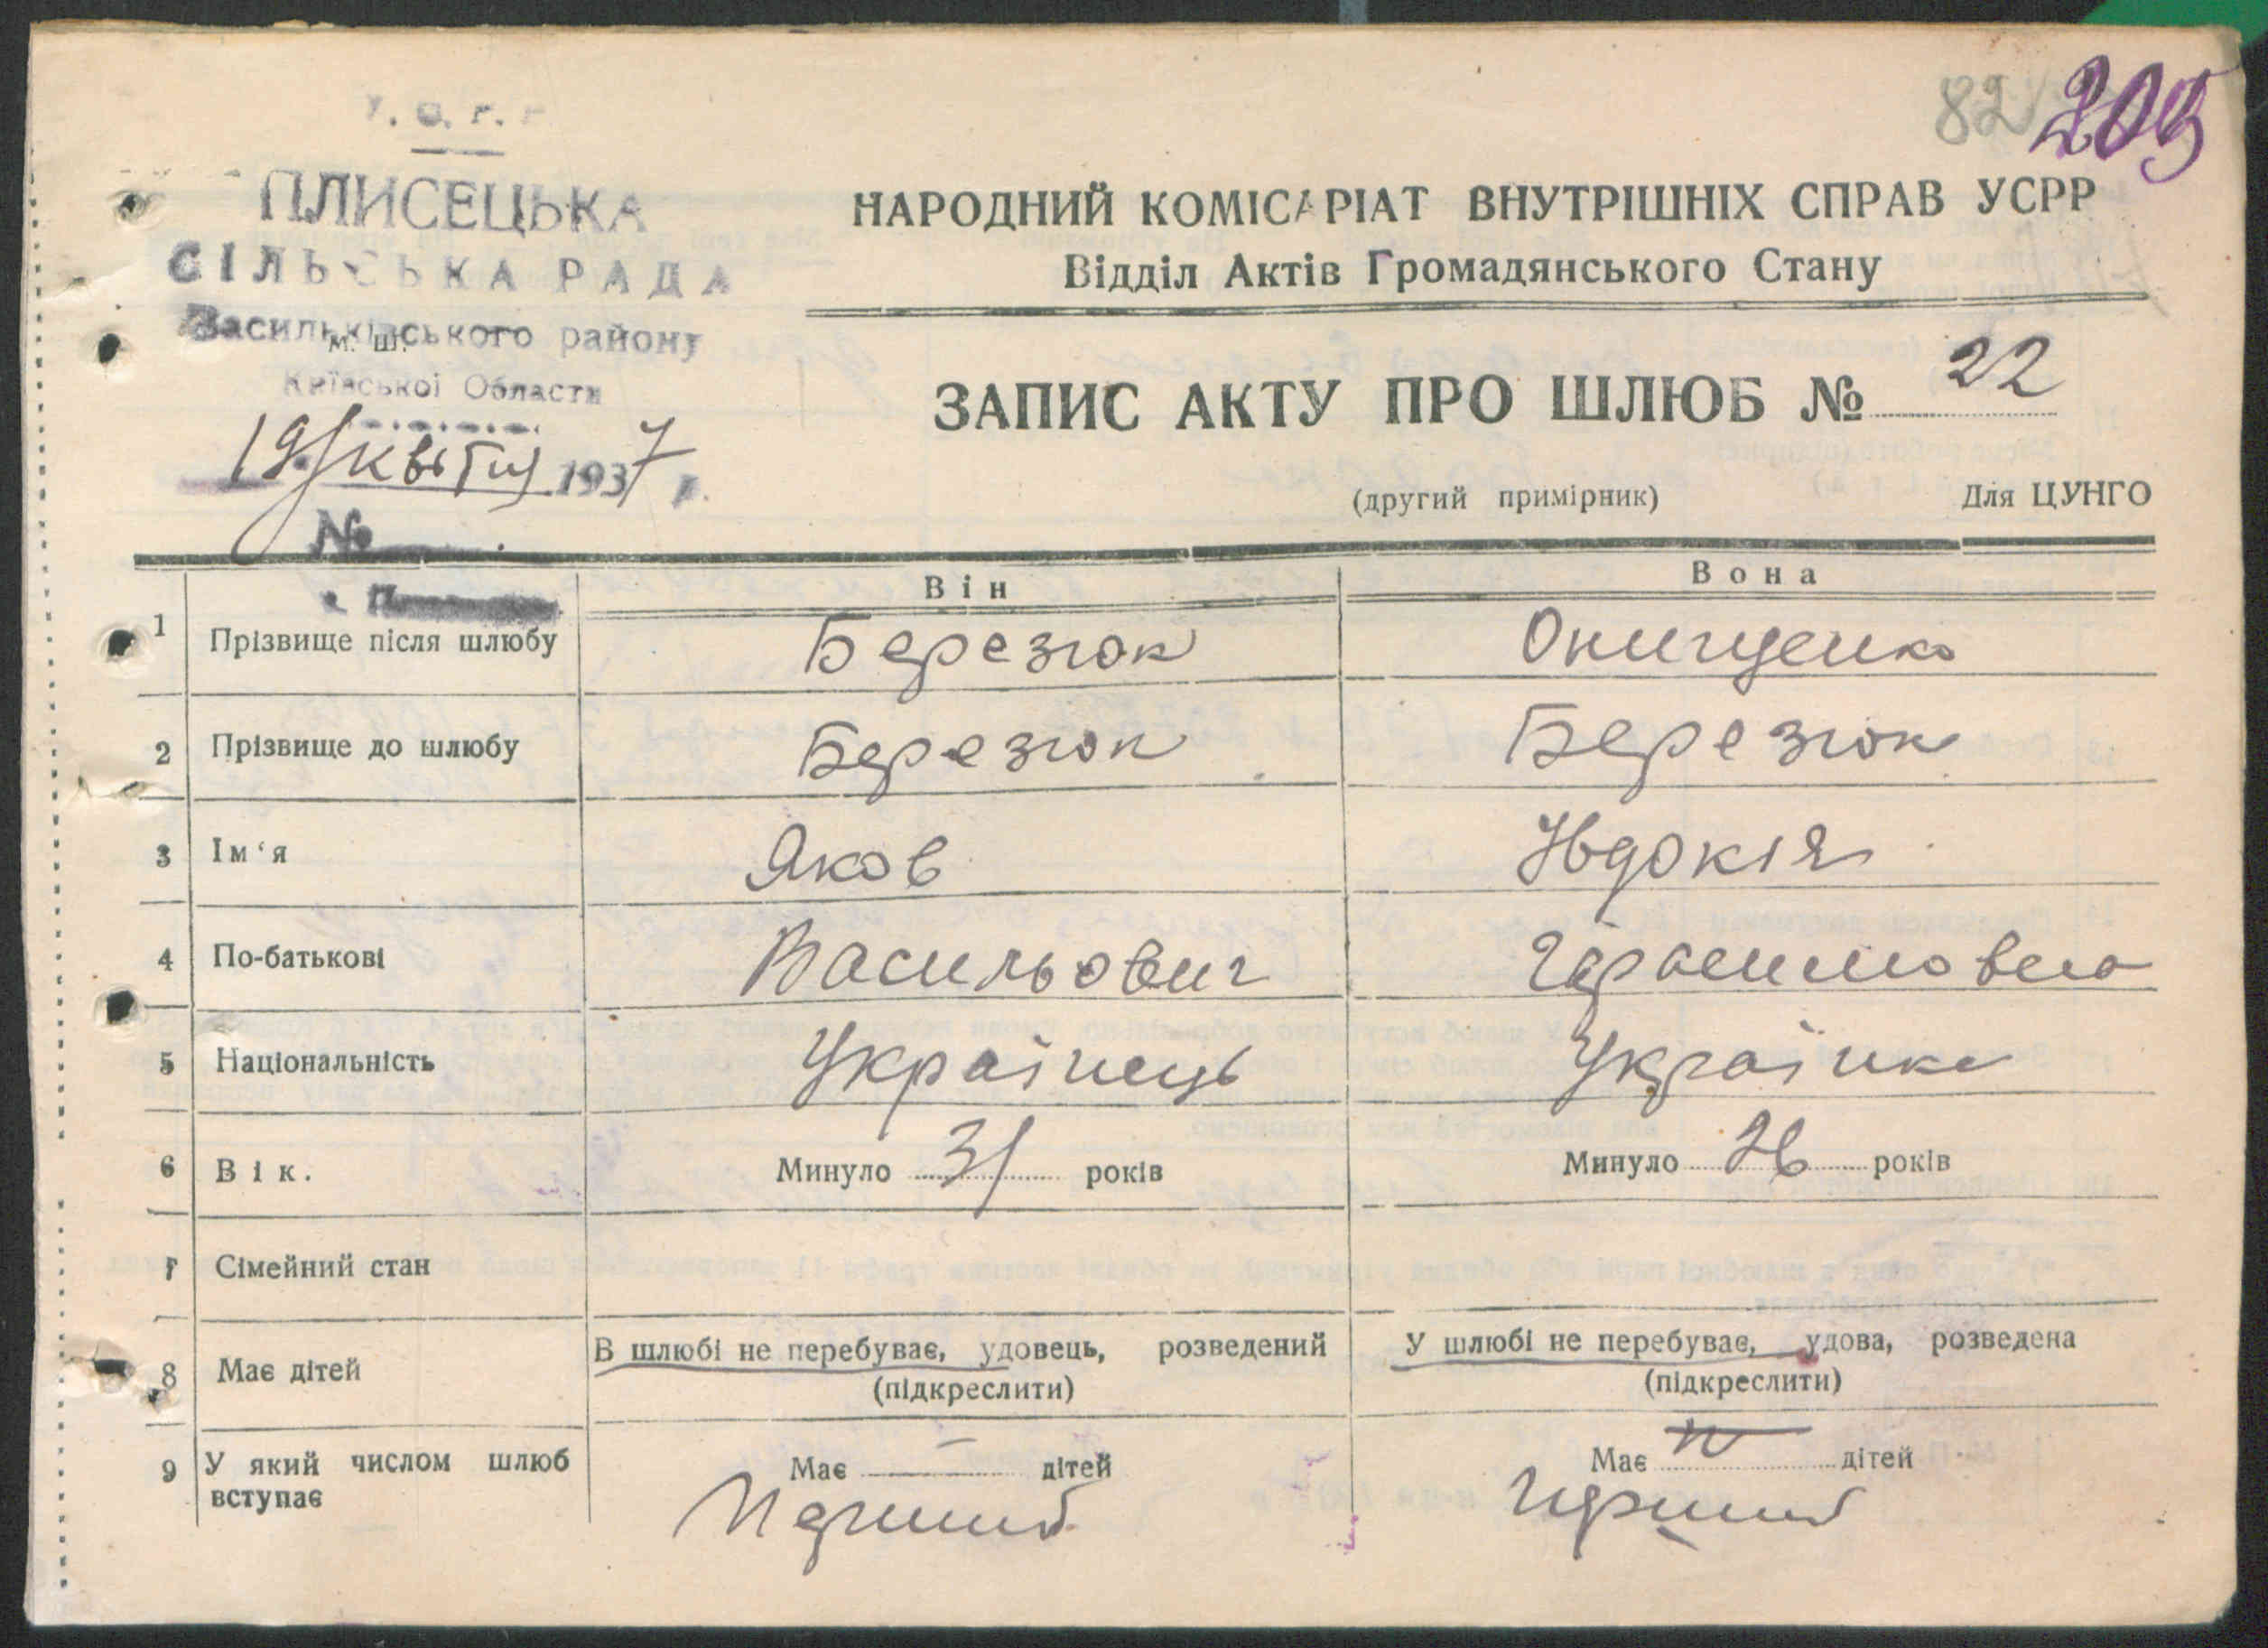 82 205
ПЛИСЕЦЬКА
СІЛЬСЬКА РАДА
Васильківського району
м. ш.
Київської Области
19 квітня 1937 р.
№
НАРОДНИЙ КОМІСАРІАТ ВНУТРІШНІХ СПРАВ УСРР
Відділ Актів Громадянського Стану
ЗАПИС АКТУ ПРО ШЛЮБ № 22
(другий примірник) Для ЦУНГО
Він Вона
1 Прізвище після шлюбу Березюк Онищенко
2 Прізвище до шлюбу Березюк Березюк
3 Ім'я Яков Явдокія
4 По-батькові Васильович Герасимовна
5 Національність Українець Українка
6 Вік. Минуло 31 років Минуло 26 років
7 Сімейний стан
В шлюбі не перебуває, удовець, розведений У шлюбі не перебуває, удова, розведена
8 Має дітей (підкреслити) (підкреслити)
9 У який числом шлюб Має — дітей Має дітей
вступає Перший Перший